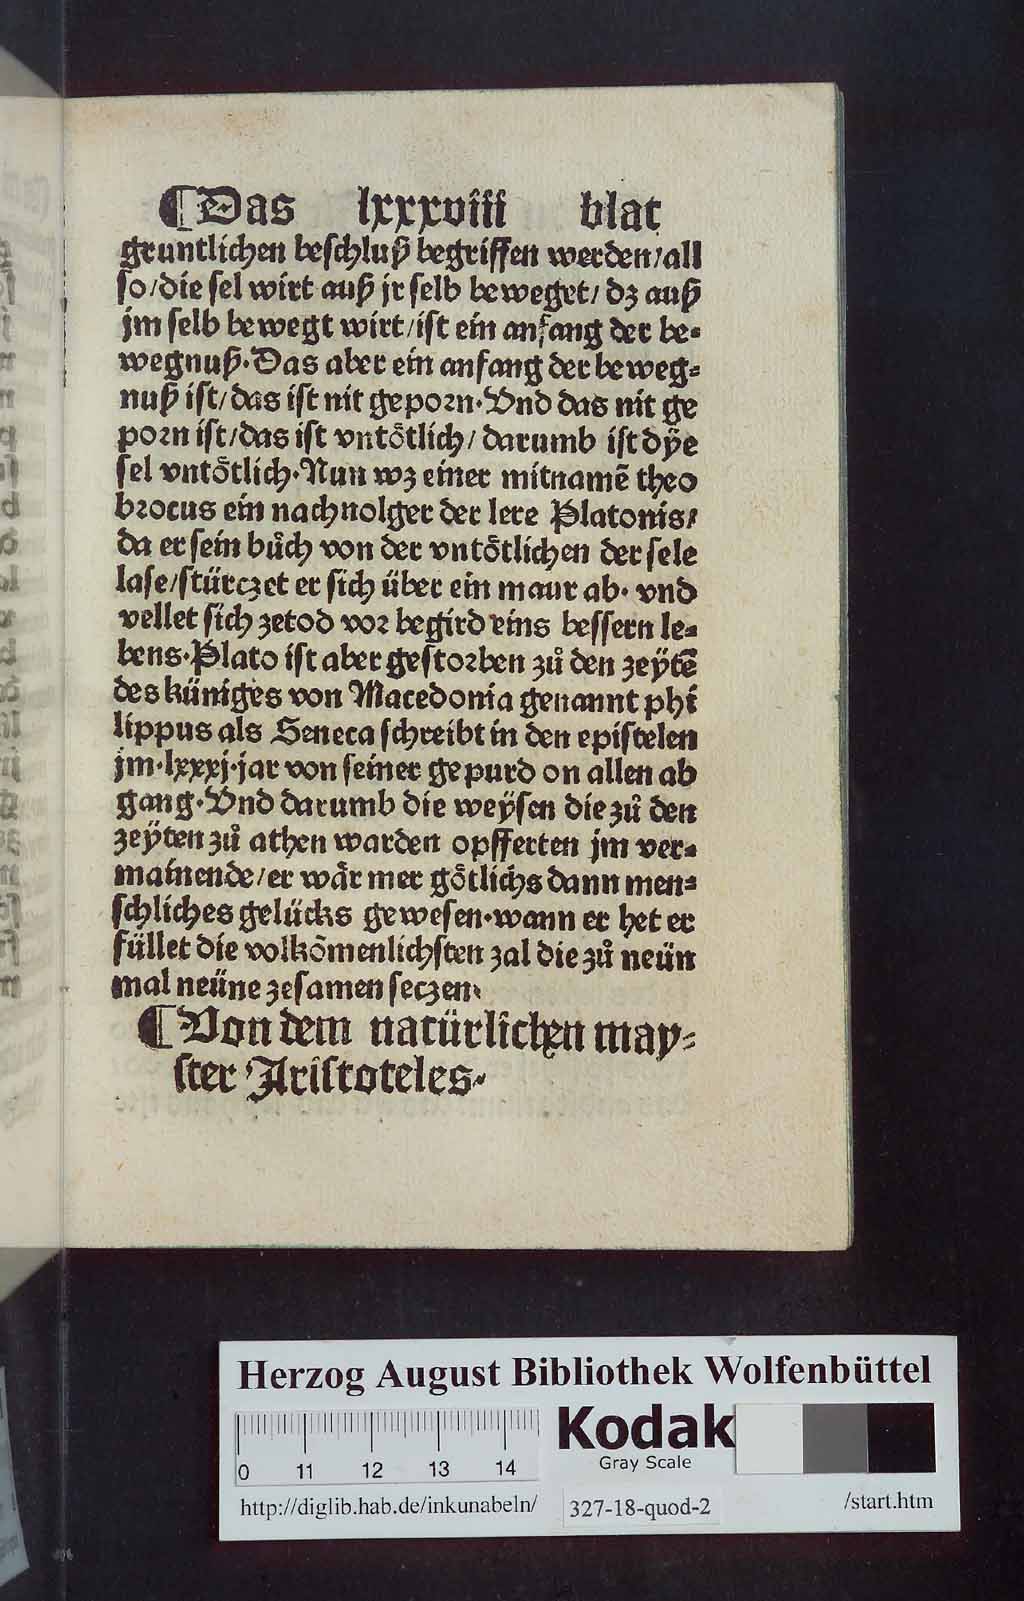 ¶Das lxxxviii blat
gruntlichen beschluß begriffen werden/all
so/die sel wirt auß jr selb beweget/dz auß
jm selb bewegt wirt/ist ein anfang der be⸗
wegnuß·Das aber ein anfang der beweg⸗
nuß ist/das ist nit geporn·Vnd das nit ge
porn ist/das ist vntötlich/darumb ist dÿe
sel vntötlich·Nun wz einer mitnamē theo
brocus ein nachuolger der lere Platonis/
da er sein bůch von der vntötlichen der sele
lase/stürczet er sich über ein maur ab· vnd
vellet sich zetod vor begird eins bessern le⸗
bens·Plato ist aber gestorben zů den zeÿtē
des küniges von Macedonia genannt phi
lippus als Seneca schreibt in den epistelen
jm·lxxxj·jar von seiner gepurd on allen ab
gang·Vnd darumb die weÿsen die zů den
zeÿten zů athen warden opfferten jm ver⸗
mainende/er wär mer götlichs dann men⸗
schliches gelücks gewesen·wann er het er
füllet die volkōmenlichsten zal die zů neün
mal neüne zesamen seczen·
¶Von dem natürlichen may⸗
ster Aristoteles·
Herzog August Bibliothek Wolfenbüttel
0 11 12 13 14
Kodak
Gray Scale
http://diglib.hab.de/inkunabeln/ 327-18-quod-2 /start.htm